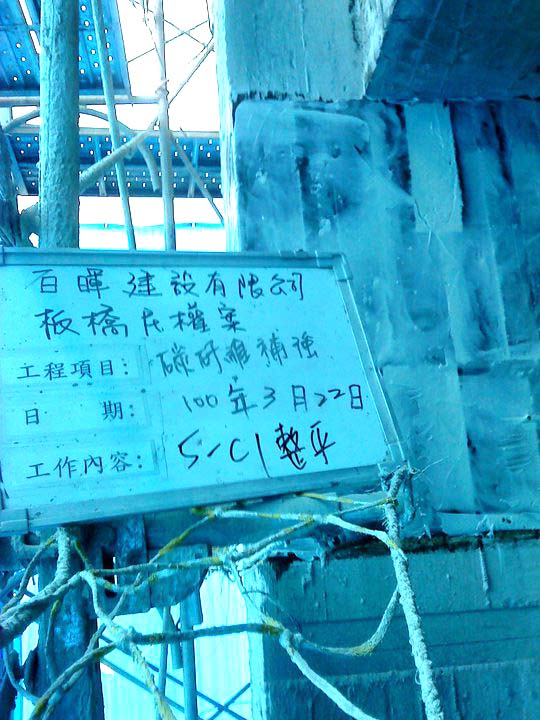 百暉建設有限公司
板橋民權案
工程項目: 碳纖維補強
日 期: 100年3月22日
工作內容: 5-C1整平